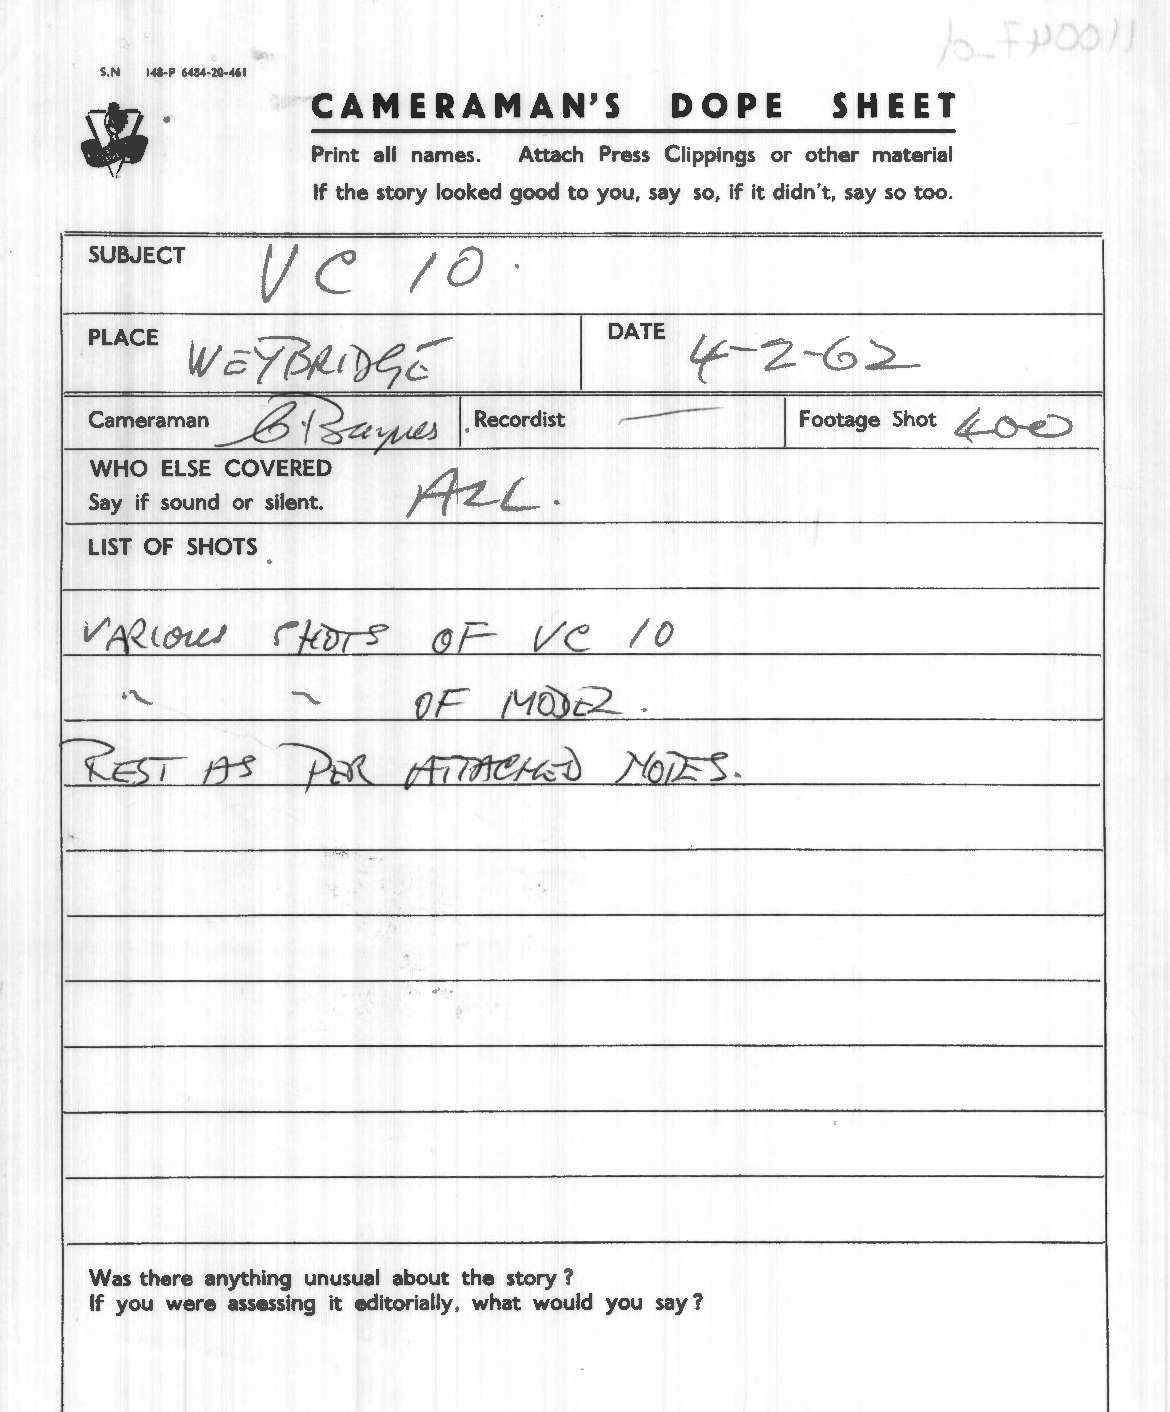 S.N 148-P 6484-20-461
CAMERAMAN'S DOPE SHEET
Print all names. Attach Press Clippings or other material
If the story looked good to you, say so, if it didn't, say so too.
SUBJECT VC 10.
PLACE WEYBRIDGE DATE 4-2-62
Cameraman C. Baynes Recordist — Footage Shot 400
WHO ELSE COVERED
Say if sound or silent. ALL.
LIST OF SHOTS
VARIOUS SHOTS OF VC 10
" " OF MODEL.
REST AS PER ATTACHED NOTES.
Was there anything unusual about the story?
If you were assessing it editorially, what would you say?